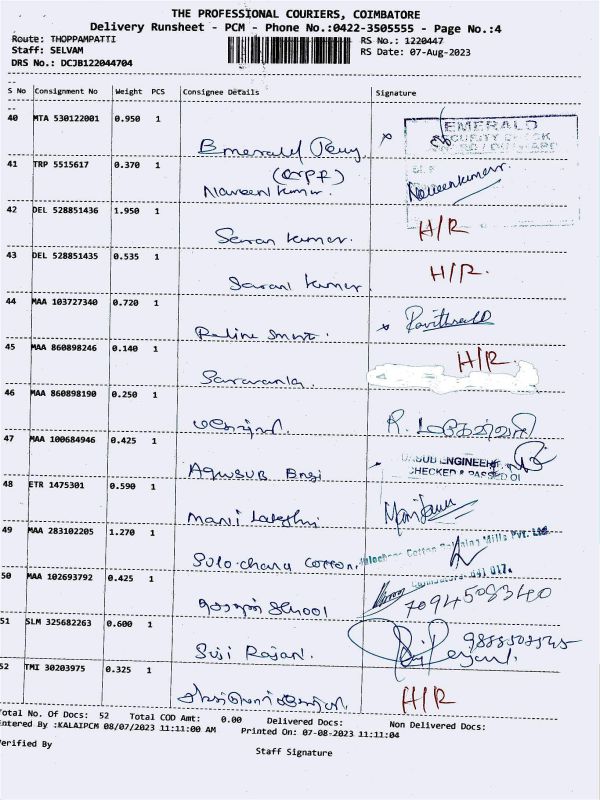 THE PROFESSIONAL COURIERS, COIMBATORE
Delivery Runsheet - PCM - Phone No.:0422-3505555 - Page No.:4
Route: THOPPAMPATTI RS No.: 1220447
Staff: SELVAM RS Date: 07-Aug-2023
DRS No.: DCJB122044704
S No Consignment No Weight PCS Consignee Details Signature
40 MTA 530122001 0.950 1
EMERALD
Emerald
41 TRP 5515617 0.370 1
Naveen kumar. Naveenkumar
42 DEL 528851436 1.950 1
Saran kumar. H/R
43 DEL 528851435 0.535 1
Saran kumar H/R.
44 MAA 103727340 0.720 1
45 MAA 860898246 0.140 1
H/R
46 MAA 860898190 0.250 1
R.
47 MAA 100684946 0.425 1
Aquasub Engi
AQUSUB ENGINEERI
CHECKED & PASSED
48 ETR 1475301 0.590 1
Mani
49 MAA 283102205 1.270 1
Sulochana Cotton Sulochana Cotton Spinning Mills Pvt. Ltd
50 MAA 102693792 0.425 1
School 7094508340
51 SLM 325682263 0.600 1
Suji Rajan.
52 TMI 30203975 0.325 1
H/R
Total No. Of Docs: 52 Total COD Amt: 0.00 Delivered Docs: Non Delivered Docs:
Entered By :KALAIPCM 08/07/2023 11:11:00 AM Printed On: 07-08-2023 11:11:04
Verified By
Staff Signature